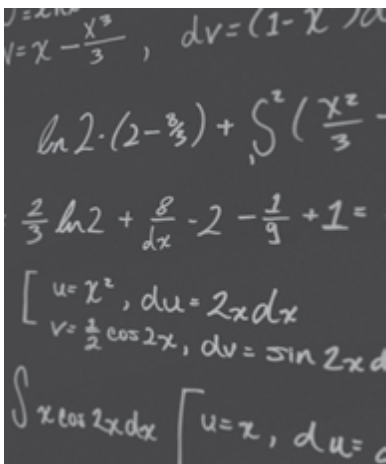 v=x-x³/3, dv=(1-x
ln2·(2-8/3)+∫₁²(x²/3-
2/3 ln2+8/dx-2-1/9+1=
[u=x², du=2xdx
v=1/2 cos2x, dv=sin 2xd
∫xcos2xdx [u=x, du=